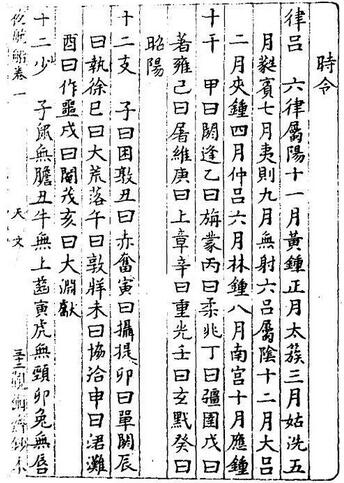 時令
律呂 六律屬陽十一月黃鍾正月太簇三月姑洗五
月蕤賓七月夷則九月無射六呂屬陰十二月大呂
二月夾鍾四月仲呂六月林鍾八月南宮十月應鍾
十干 甲曰閼逢乙曰旃蒙丙曰柔兆丁曰彊圉戊曰
著雍己曰屠維庚曰上章辛曰重光壬曰玄黓癸曰
昭陽
十二支 子曰困敦丑曰赤奮寅曰攝提卯曰單閼辰
曰執徐巳曰大荒落午曰敦牂未曰協洽申曰涒灘
酉曰作噩戌曰閹茂亥曰大淵獻
十二少 子鼠無膽丑牛無上齒寅虎無頸卯兔無唇
夜航船卷一 天文